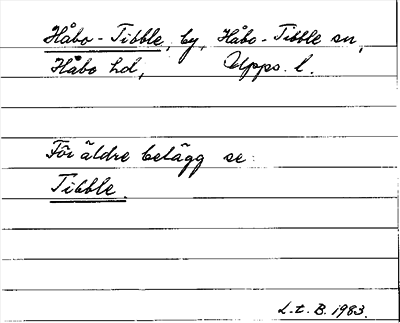 Håbo-Tibble, by, Håbo-Tibble sn,
Håbo hd, Upps. l.
För äldre belägg se:
Tibble.
L.t. B. 1983.